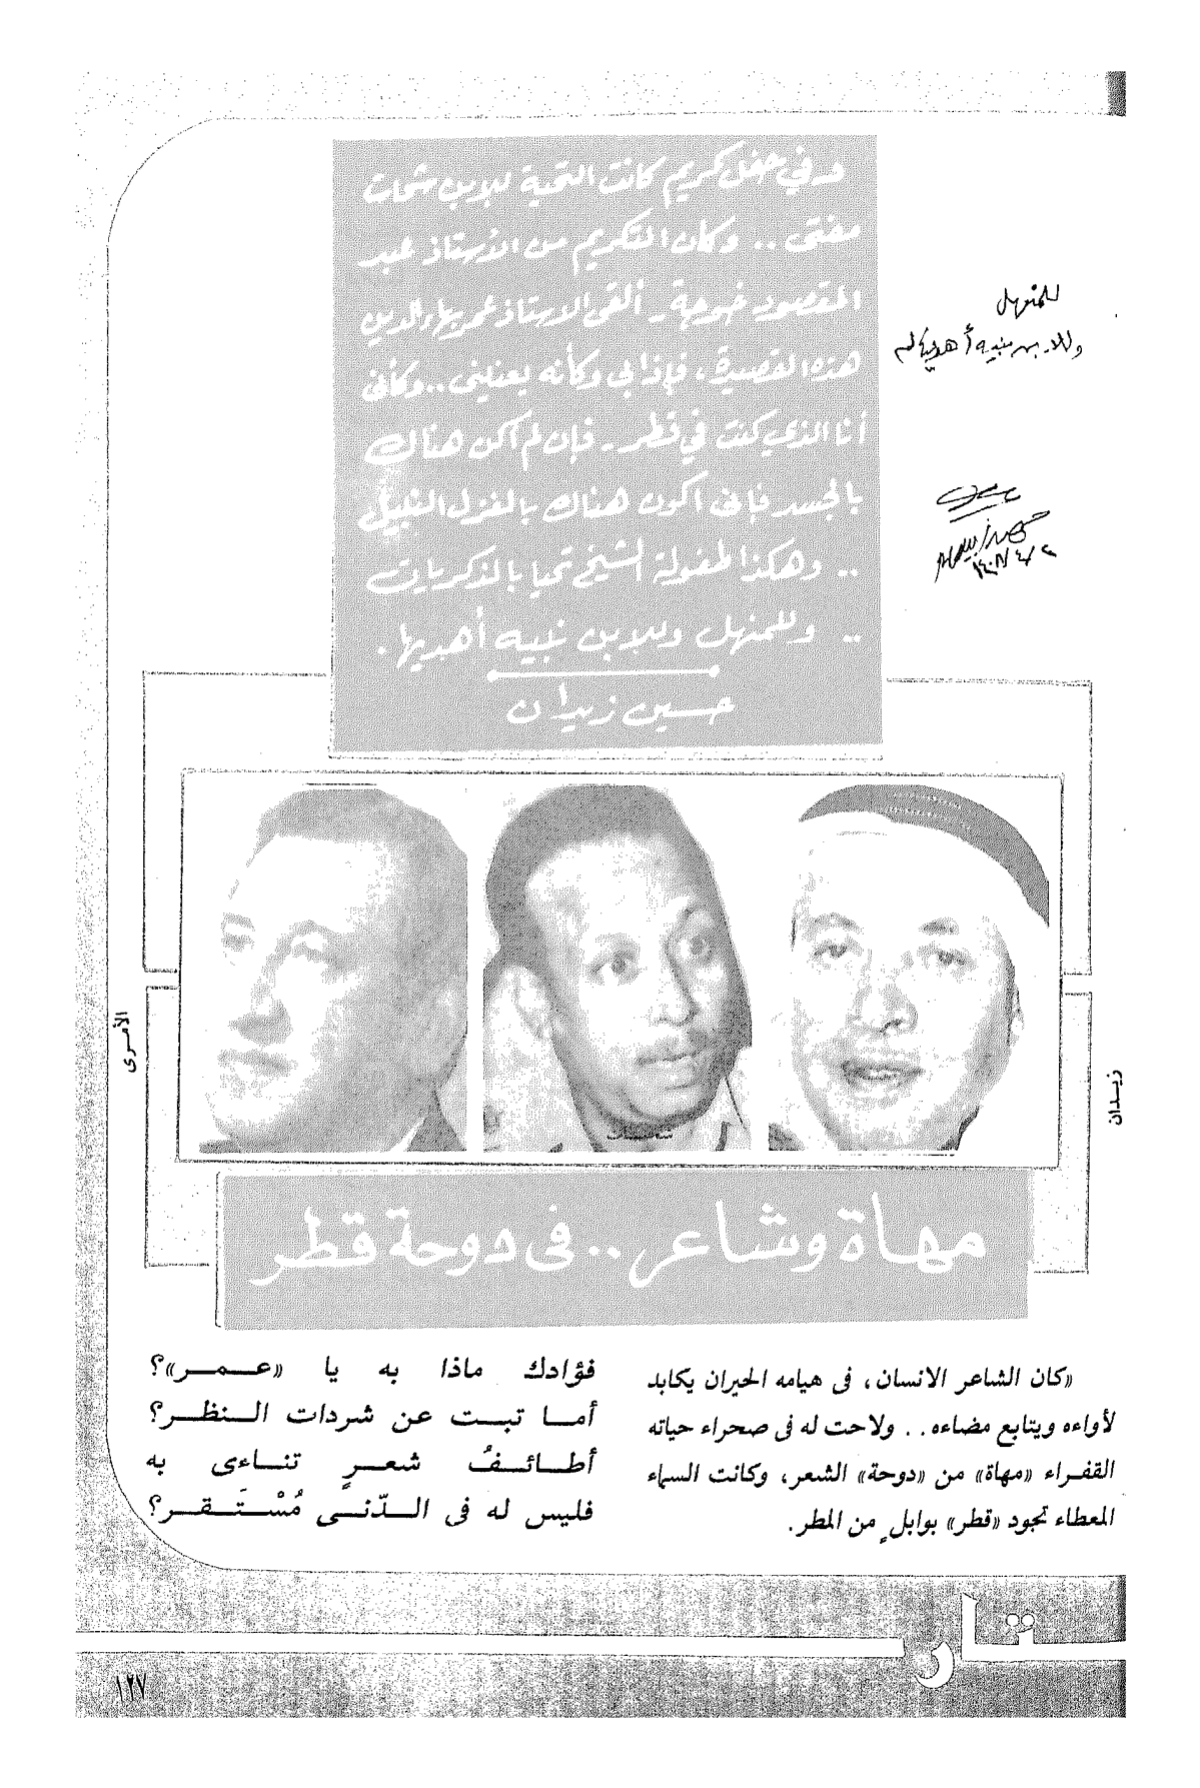 د في حفل كريم كانت التحية للابن شحات
مفتى .. وكان التكريم من الأستاذ عبد
المقصود خوجة .. ألقى الاستاذ عمر بهاء الدين
هذه القصيدة، فإذا بي وكأنه يعنيني .. وكأني
أنا الذي كنت في قطر .. فإن لم أكن هناك
بالجسد فإني اكون هناك بالغزل النبيل
.. وهكذا طفولة الشيخ تحيا بالذكريات
.. وللمنهل وللابن نبيه أهديها .
حسين زيدان
للمنهل
وللابن نبيه أهديها
١٤٠٧/٤/٢
الأمرى
زيدان
شحات
مهاة وشاعر .. فى دوحة قطر
«كان الشاعر الانسان، فى هيامه الحيران يكابد
لأواءه ويتابع مضاءه .. ولاحت له فى صحراء حياته
القفراء «مهاة» من «دوحة» الشعر، وكانت السماء
المعطاء تجود «قطر» بوابلٍ من المطر.
فؤادك ماذا به يا «عمر»؟
أما تبت عن شردات النظر؟
أطائفُ شعرٍ تناءى به
فليس له فى الدّنى مُسْتَقر؟
ستار
١٢٧